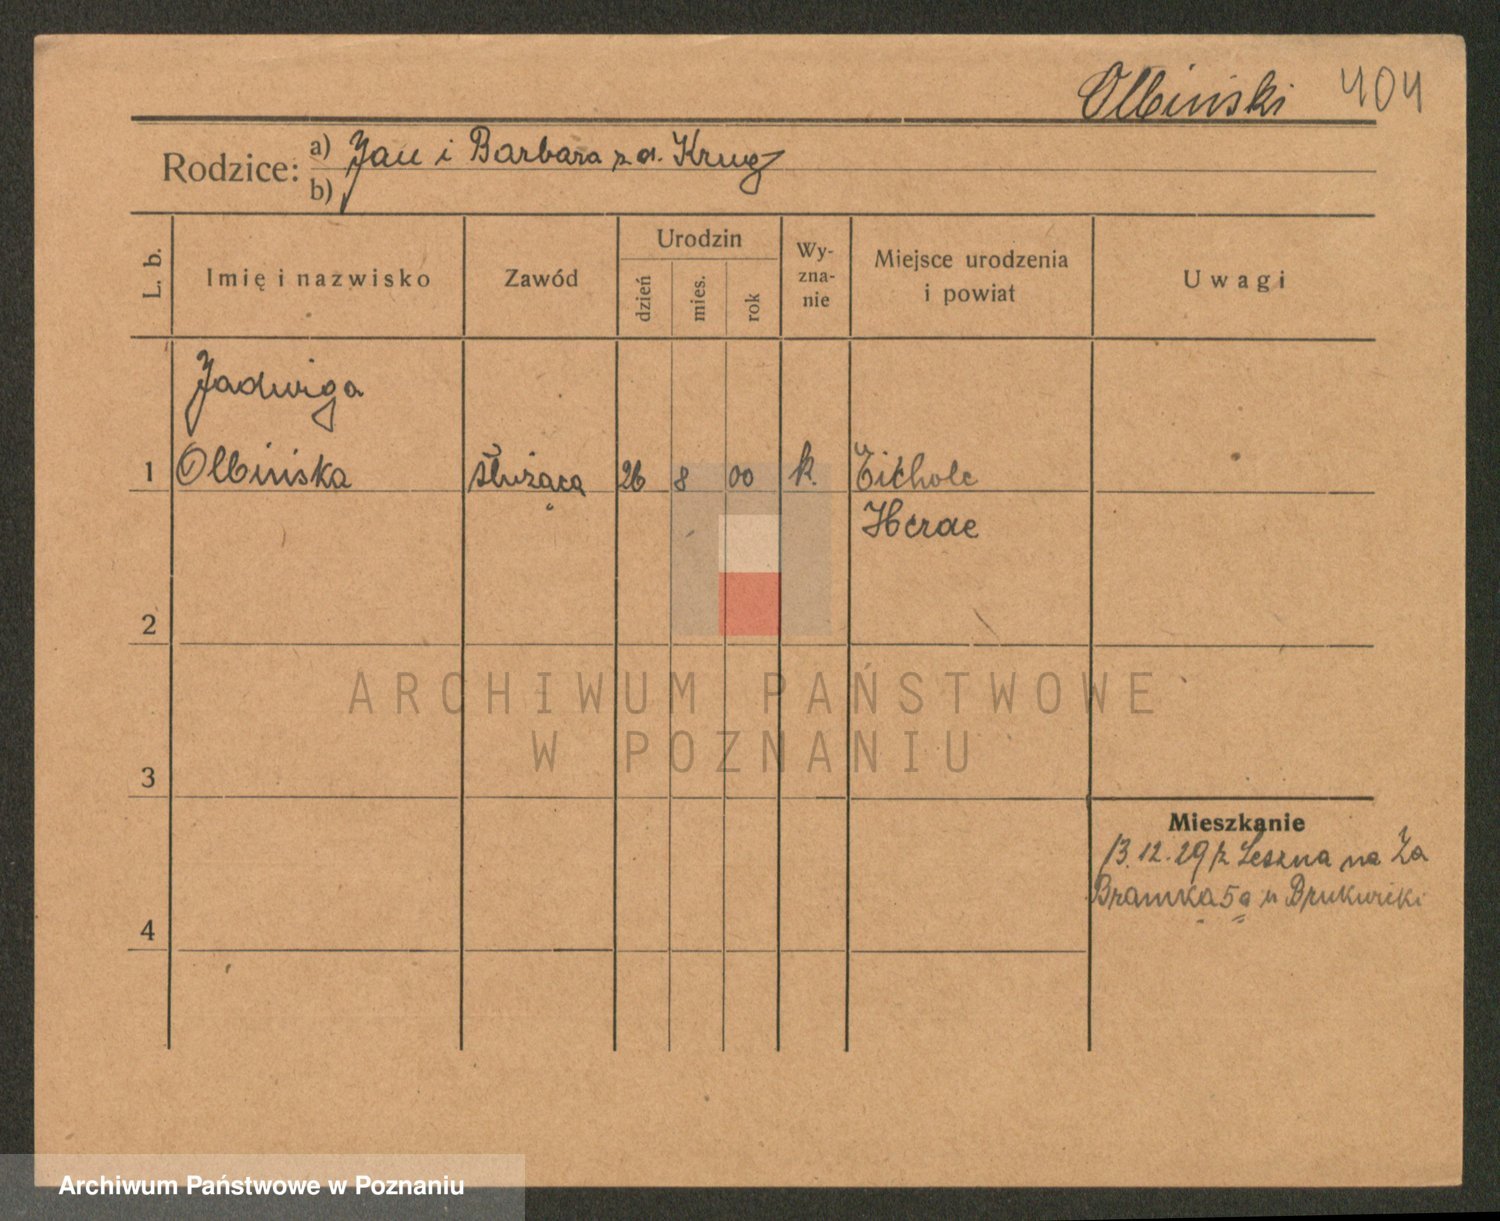 Olbiński 404
Rodzice: a) Jan i Barbara z d. Krug
b)
L. b.
Imię i nazwisko
Zawód
Urodzin
dzień
mies.
rok
Wy-
zna-
nie
Miejsce urodzenia
i powiat
Uwagi
Jadwiga
1 Olbińska służąca 26 8 00 k. Eichole
Herne
2
ARCHIWUM PAŃSTWOWE
W POZNANIU
3
Mieszkanie
13.12.29 z Leszna na Za
Bramką 5a u Brukwicki
4
Archiwum Państwowe w Poznaniu